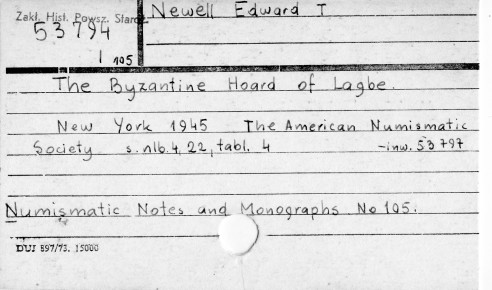 Zakł. Hist. Powsz. Staroż.
Newell Edward T
53 794
I 105
The Byzantine Hoard of Lagbe.
New York 1945 The American Numismatic
Society s. nlb. 4, 22, tabl. 4 -inw. 53 797
Numismatic Notes and Monographs No 105.
DUJ 897/73. 15000